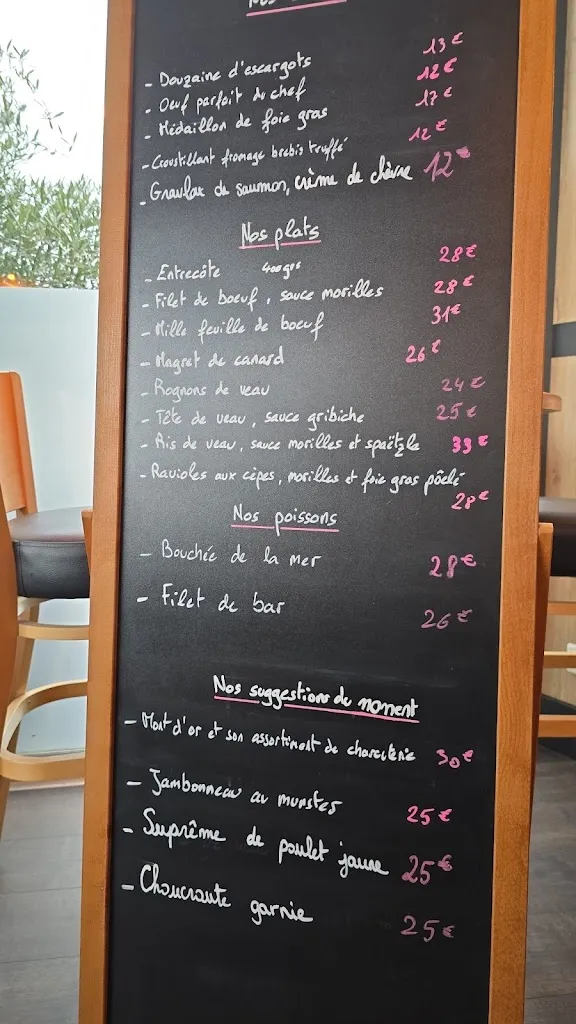 - Douzaine d'escargots 13€
- Oeuf parfait du chef 12€
- Médaillon de foie gras 17€
- Croustillant fromage brebis truffé 12€
- Gravlax de saumon, crème de chèvre 12€
Nos plats
- Entrecôte 400grs 28€
- Filet de boeuf, sauce morilles 28€
- Mille feuille de boeuf 31€
- Magret de canard 26€
- Rognons de veau 24€
- Tête de veau, sauce gribiche 25€
- Ris de veau, sauce morilles et spaëtzle 33€
- Ravioles aux cèpes, morilles et foie gras pôêlé 28€
Nos poissons
- Bouchée de la mer 28€
- Filet de bar 26€
Nos suggestions du moment
- Mont d'or et son assortiment de charcuterie 30€
- Jambonneau au munster 25€
- Suprême de poulet jaune 25€
- Choucroute garnie 25€